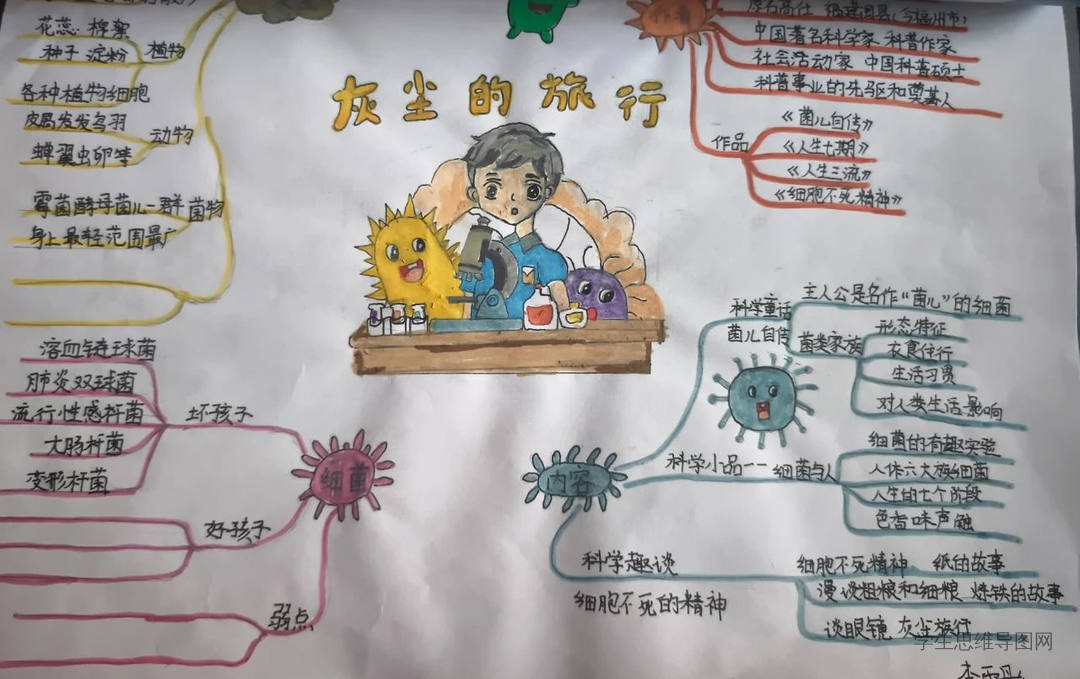 灰尘的旅行
花蕊 棉絮
种子 淀粉
植物
各种植物细胞
皮屑发发鸟羽
动物
蝉翼虫卵等
霉菌酵母菌儿一群
菌物
身上最轻范围最广
作者
中国著名科学家 科普作家
社会活动家 中国科普硕士
科普事业的先驱和奠基人
作品
《菌儿自传》
《人生七期》
《人生三流》
《细胞不死精神》
细菌
溶血链球菌
肺炎双球菌
流行性感杆菌
大肠杆菌
变形杆菌
坏孩子
好孩子
弱点
内容
科学童话
菌儿自传
主人公是名作"菌儿"的细菌
菌类家族
形态特征
衣食住行
生活习惯
对人类生活影响
科学小品--
细菌与人
细菌的有趣实验
人体六大族细菌
人生的七个阶段
色香味声触
科学趣谈
细胞不死的精神
细胞不死精神 纸的故事
漫谈粗粮和细粮 炼铁的故事
谈眼镜 灰尘旅行
学生思维导图网